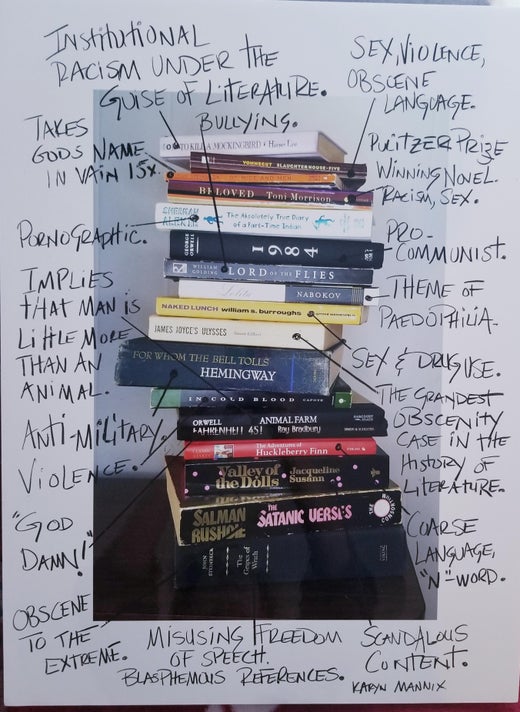 INSTITUTIONAL
RACISM UNDER THE
GUISE OF LITERATURE.
BULLYING.
SEX, VIOLENCE,
OBSCENE
LANGUAGE.
TAKES
GODS NAME
IN VAIN 15X.
PULITZER PRIZE
WINNING NOVEL.
RACISM, SEX.
PORNOGRAPHIC.
PRO-
COMMUNIST.
IMPLIES
THAT MAN IS
LITTLE MORE
THAN AN
ANIMAL.
THEME OF
PAEDOPHILIA.
SEX & DRUG USE.
ANTI-MILITARY.
VIOLENCE.
THE GRANDEST
OBSCENITY
CASE IN THE
HISTORY OF
LITERATURE.
"GOD
DAMN!"
COARSE
LANGUAGE,
"N"-WORD.
OBSCENE
TO THE
EXTREME.
MISUSING FREEDOM
OF SPEECH.
BLASPHEMOUS REFERENCES.
SCANDALOUS
CONTENT.
KARYN MANNIX
TO KILL A MOCKINGBIRD Harper Lee
VONNEGUT SLAUGHTERHOUSE-FIVE
OF MICE AND MEN
BELOVED Toni Morrison
SHERMAN
ALEXIE
The Absolutely True Diary
of a Part-Time Indian
GEORGE
ORWELL
1984
WILLIAM
GOLDING
LORD OF THE FLIES
Lolita NABOKOV
NAKED LUNCH william s. burroughs
JAMES JOYCE'S ULYSSES Stuart Gilbert
FOR WHOM THE BELL TOLLS
HEMINGWAY
IN COLD BLOOD CAPOTE
ORWELL ANIMAL FARM
FAHRENHEIT 451 Ray Bradbury
The Adventures of
Huckleberry Finn
Valley of
the Dolls
Jacqueline
Susann
SALMAN
RUSHDIE
THE
SATANIC VERSES
JOHN
STEINBECK
The
Grapes of
Wrath
VIKING